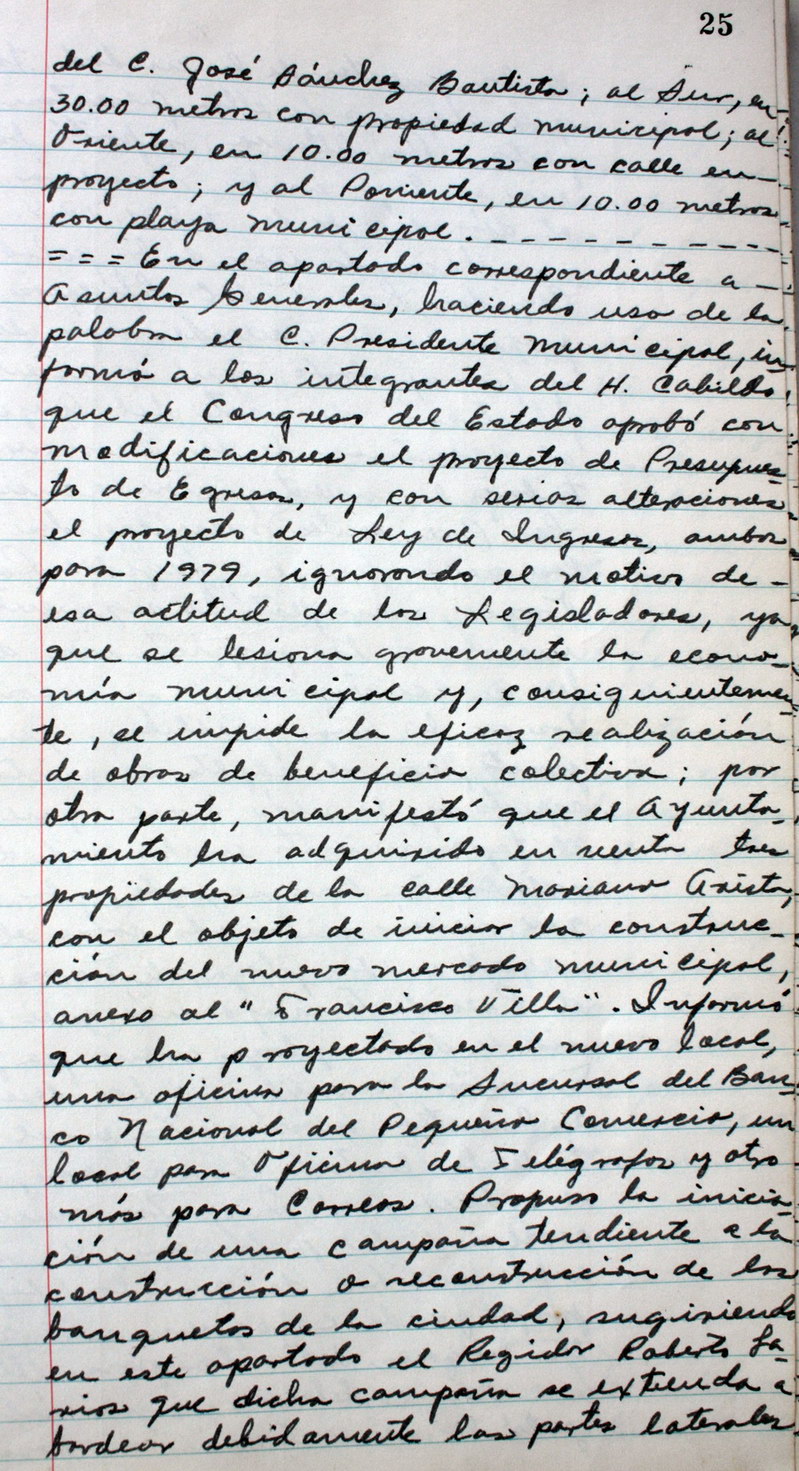 25
del C. José Sánchez Bautista; al Sur, en
30.00 metros con propiedad municipal; al
Oriente, en 10.00 metros con calle en -
proyecto; y al Poniente, en 10.00 metros
con playa municipal. - - - - - - - - - -
= = = En el apartado correspondiente a -
Asuntos Generales, haciendo uso de la
palabra el C. Presidente Municipal, in
formó a los integrantes del H. Cabildo,
que el Congreso del Estado aprobó con
modificaciones el proyecto de Presupues-
to de Egresos, y con serias alteraciones
el proyecto de Ley de Ingresos, ambos
para 1979, ignorando el motivo de -
esa actitud de los Legisladores, ya
que se lesiona gravemente la econo-
mía municipal y, consiguientemen
te, se impide la eficaz realización
de obras de beneficio colectivo; por
otra parte, manifestó que el Ayunta-
miento ha adquirido en venta tres
propiedades de la calle Mariano Arista,
con el objeto de iniciar la construc-
ción del nuevo mercado municipal,
anexo al "Francisco Villa". Informó
que ha proyectado en el nuevo local,
una oficina para la Sucursal del Ban
co Nacional del Pequeño Comercio, un
local para Oficina de Telégrafos y otro
más para Correos. Propuso la inicia
ción de una campaña tendiente a la
construcción o reconstrucción de las
banquetas de la ciudad, sugiriendo
en este apartado el Regidor Roberto La-
rios que dicha campaña se extienda a
bardear debidamente las partes laterales